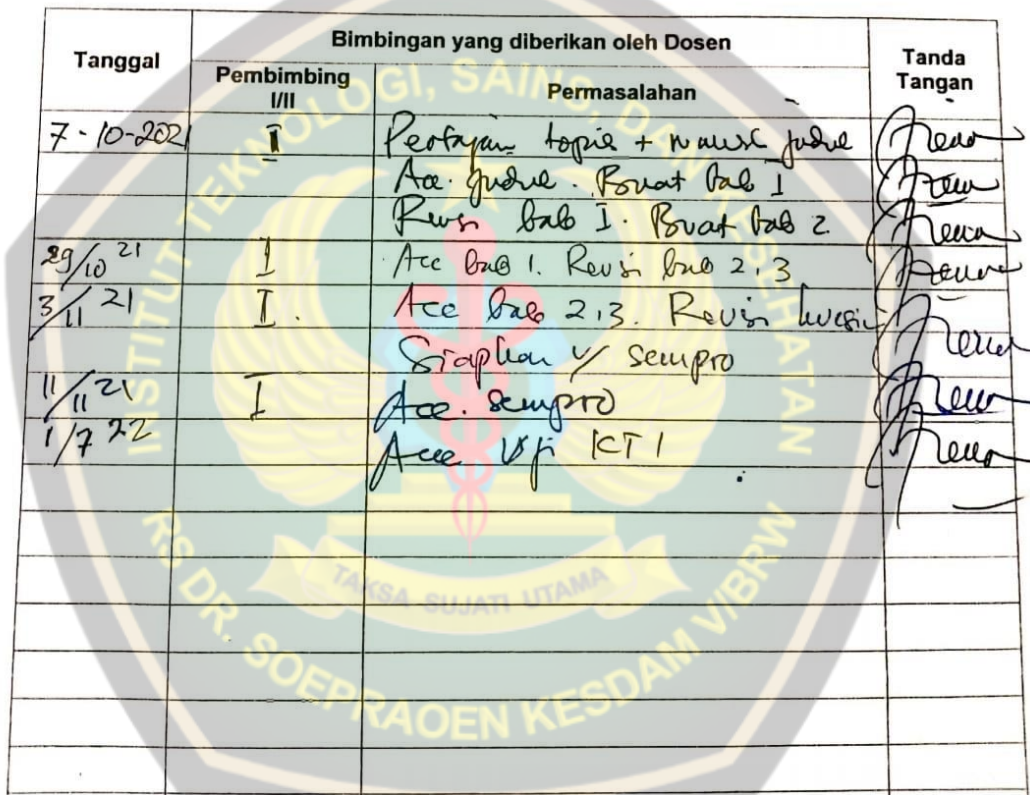 Tanggal
Bimbingan yang diberikan oleh Dosen
Tanda Tangan
Pembimbing I/II
Permasalahan
7-10-2021 I topik +
Acc. judul. Buat bab I
Revisi bab I. Buat bab 2
29/10 21 I Acc bab 1. Revisi bab 2,3
3/11 21 I. Acc bab 2,3. Revisi
Siapkan u/ sempro
11/11 21 I Acc. sempro
1/7 22 Acc Uji KTI
INSTITUT TEKNOLOGI, SAINS, DAN KESEHATAN
RS DR. SOEPRAOEN KESDAM V/BRW
TAKSA SUJATI UTAMA